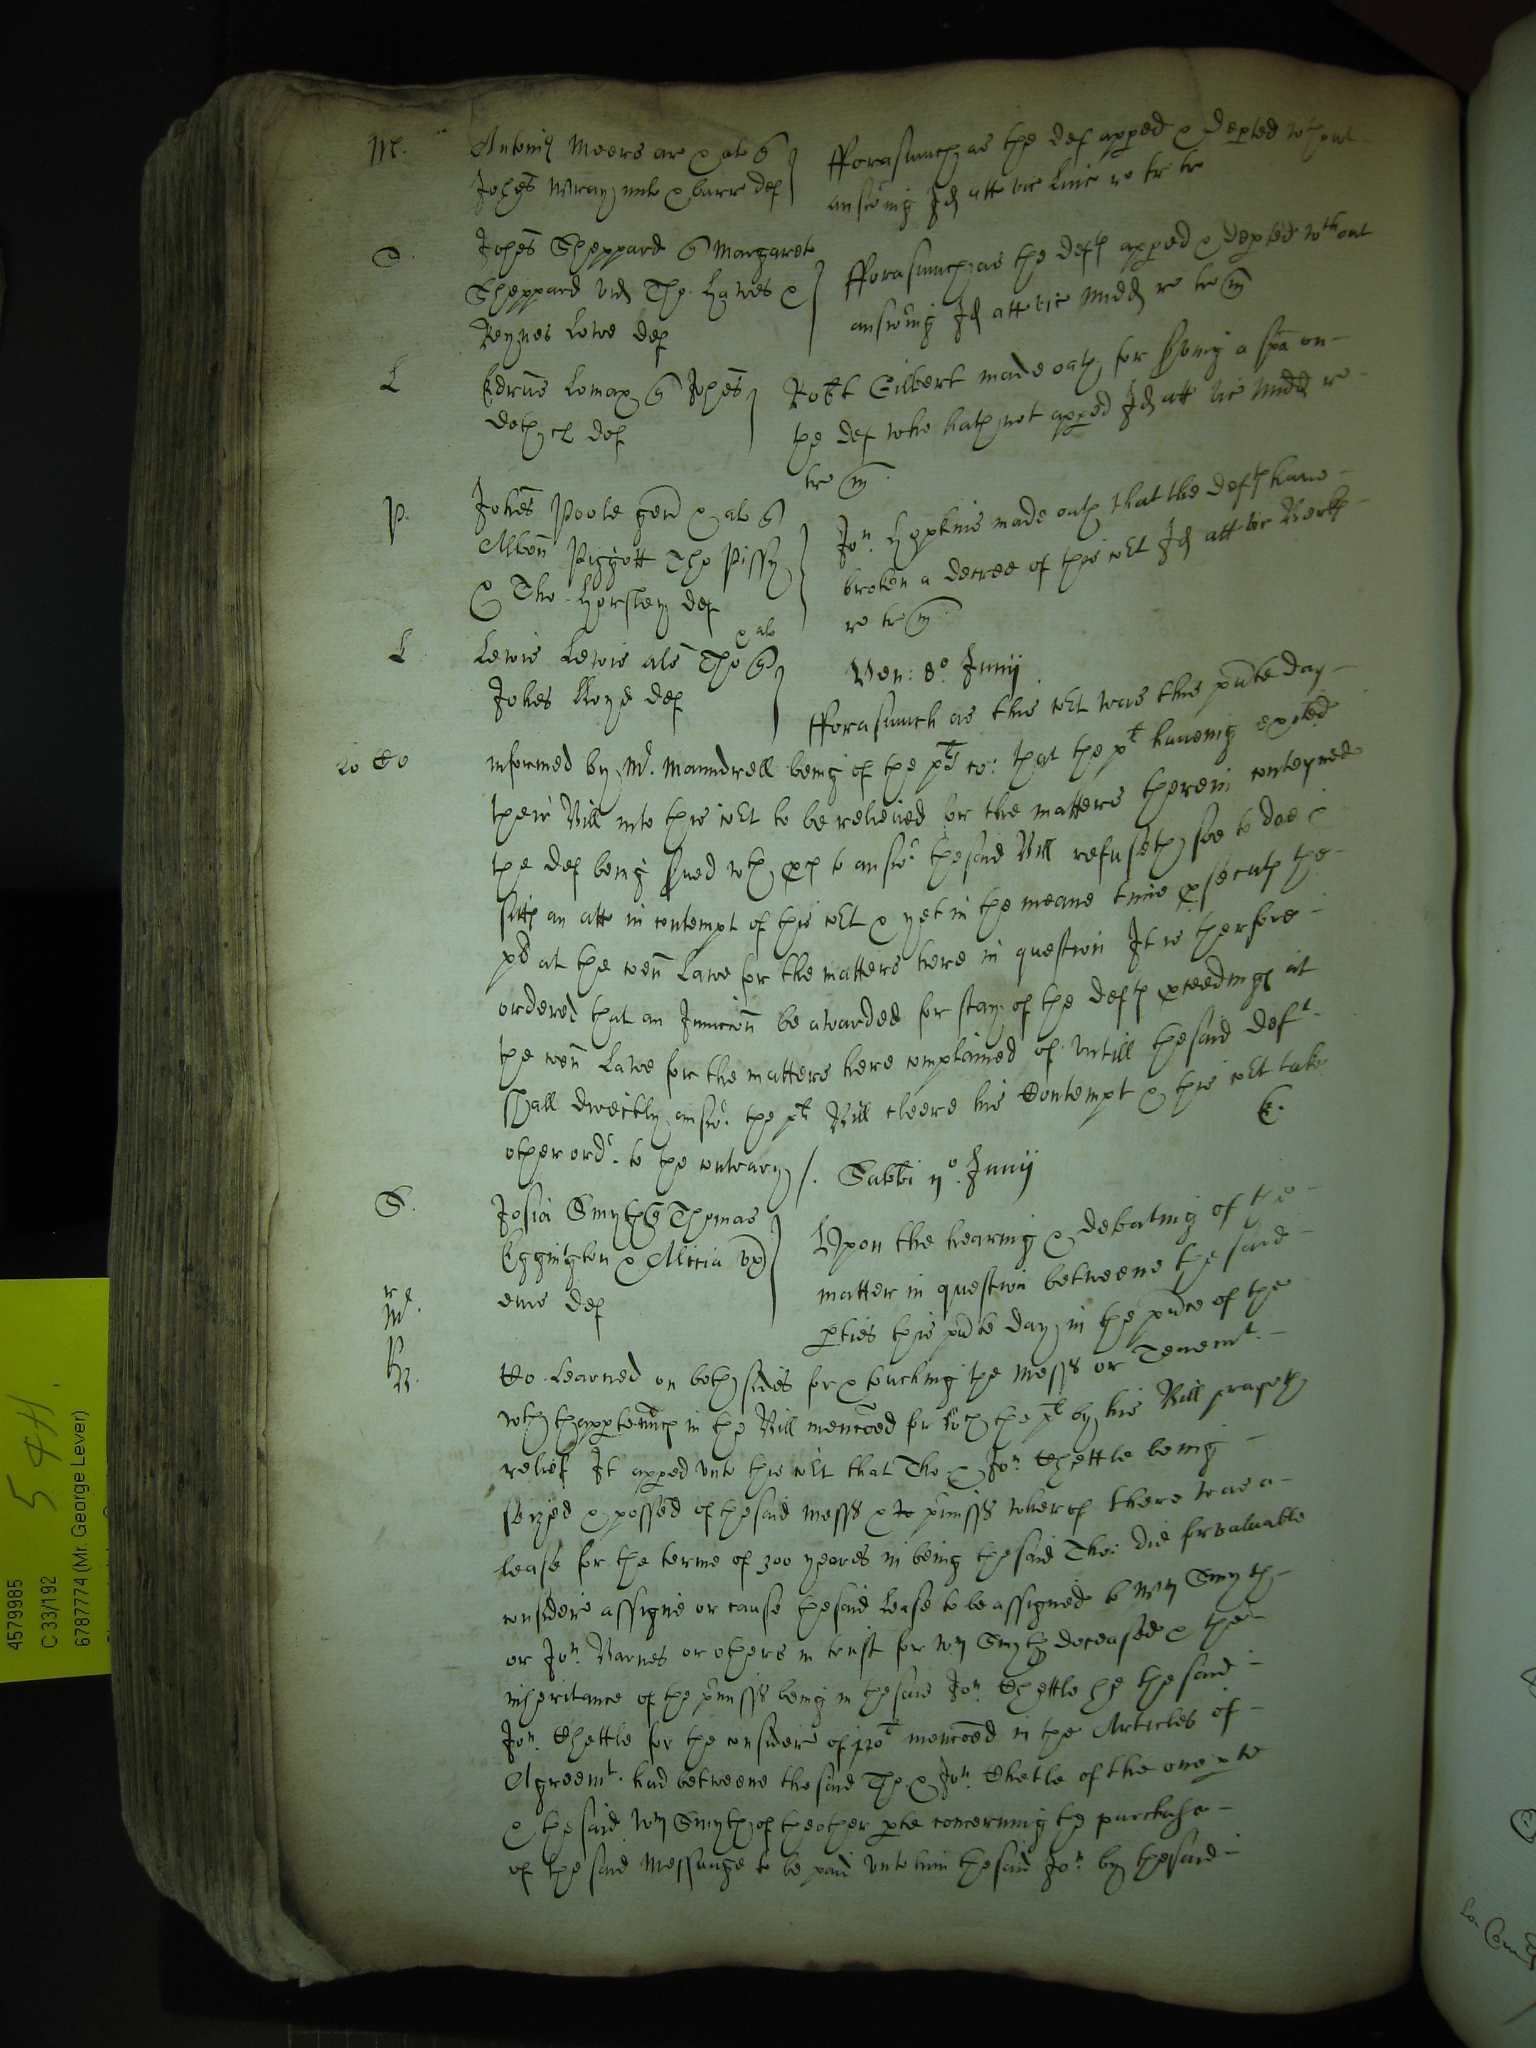 M. Antoniꝰ Meers ar & al q
Johēs Wray milt & barr def
fforasmuch as the def appeed & depted wthout
answeing Jd att vic Linc re
S. Johēs Sheppard q Margareta
Sheppard vid Tho. Hawes &
Reynes Lowe def
fforasmuch as the defts appeed & depted wthout
answeing Jd att vic Midd re
L Edrūs Lomax q Johēs
def
Robt Gilbert made oath for sving a spa on
the def who hath not appeed Jd att vic Midd re
P. Johēs Poole gen & al q
Albon Piggott Tho Pissy
& Tho. Horsley def
Jon. Hopkins made oath that the defts have
broken a decree of this cot Jd att vic Berks
re
L Lewis Lewis als Tho & al q
Johes lloyd def
Ven: 8o. Junij
fforasmuch as this cot was this pnte day
informed by Mr. Maundrell being of the pts co: that the pt haveing exited
their Bill into this cot to be releived for the matters therein conteyned
the def being sved wth to answer the said Bill refuseth soe to doe &
sitts an att in contempt of this cot & yet in the meane time psecuth the
pt at the coen Lawe for the matters here in question It is therfore
ordered that an Iniuncōn be awarded for stay of the defts pceedings at
the coen Lawe for the matters here complained of vntill the said deft
shall directly answer the pts Bill cleere his Contempt & this cot take
other ordr. to the contrary /.
Sabbti 9o. Junij
S. Josia Smyth q Thomas
Eggington & Alicia vx
eius def
Upon the hearing & debating of the
matter in question betweene the said
pties this pnte day in the pnce of the
Co. Learned on both sides for & touching the Mess or Tenemt.
wth thapptennces in the Bill menconed for wch the pt by his Bill prayeth
relief It appeed vnto this cot that Tho & Jon. Chettle being
seized & possed of the said mess & premisses wherof there was a
lease for the terme of 300 yeares in being the said Tho: did for valuable
consideracon assigne or cause the said Lease to be assigned to Wm Smyth
or Jon. Barnes or others in trust for Wm Smyth deceased & the
inheritance of the premisses being in the said Jon. Chettle he the said
Jon. Chettle for the consideracon of 120l menconed in the Articles of
Agreemt. had betweene the said Tho & Jon. Chetle of the one pte
& the said Wm Smyth of the other pte concerning the purchase
of the said Messuage to be paid vnto him the said Jon. by the said
4579985
C 33/192
6787774 (Mr. George Lever)